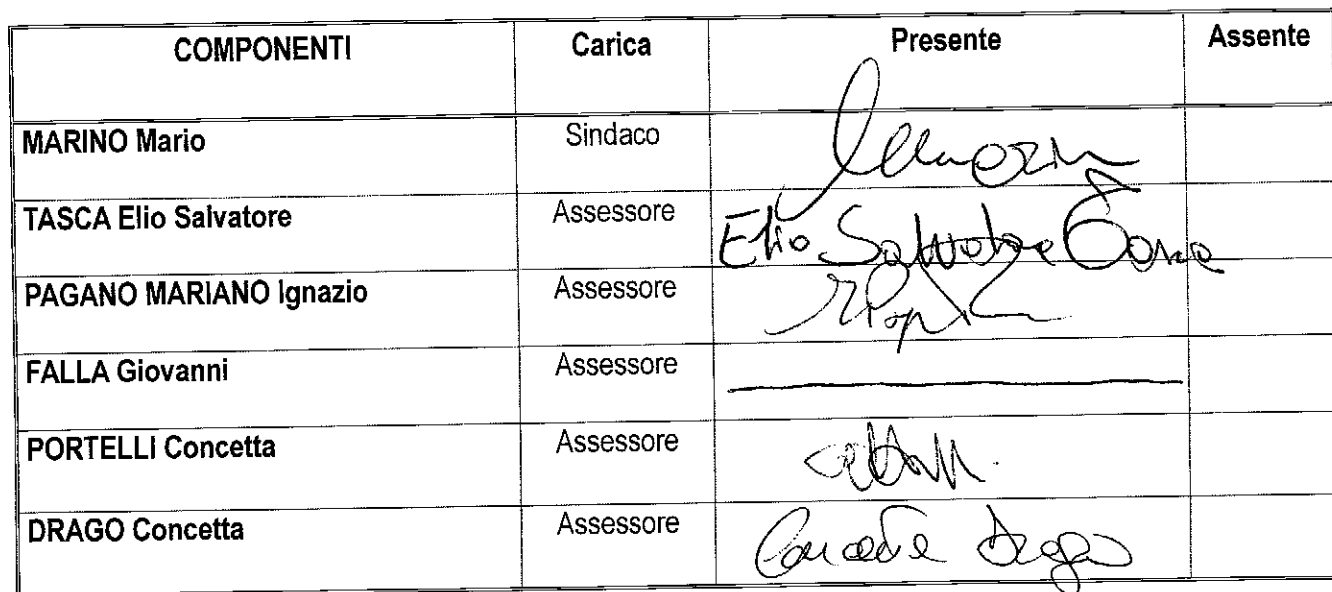 COMPONENTI Carica Presente Assente
MARINO Mario Sindaco
TASCA Elio Salvatore Assessore Elio Salvatore Tasca
PAGANO MARIANO Ignazio Assessore
FALLA Giovanni Assessore
PORTELLI Concetta Assessore
DRAGO Concetta Assessore Concetta Drago